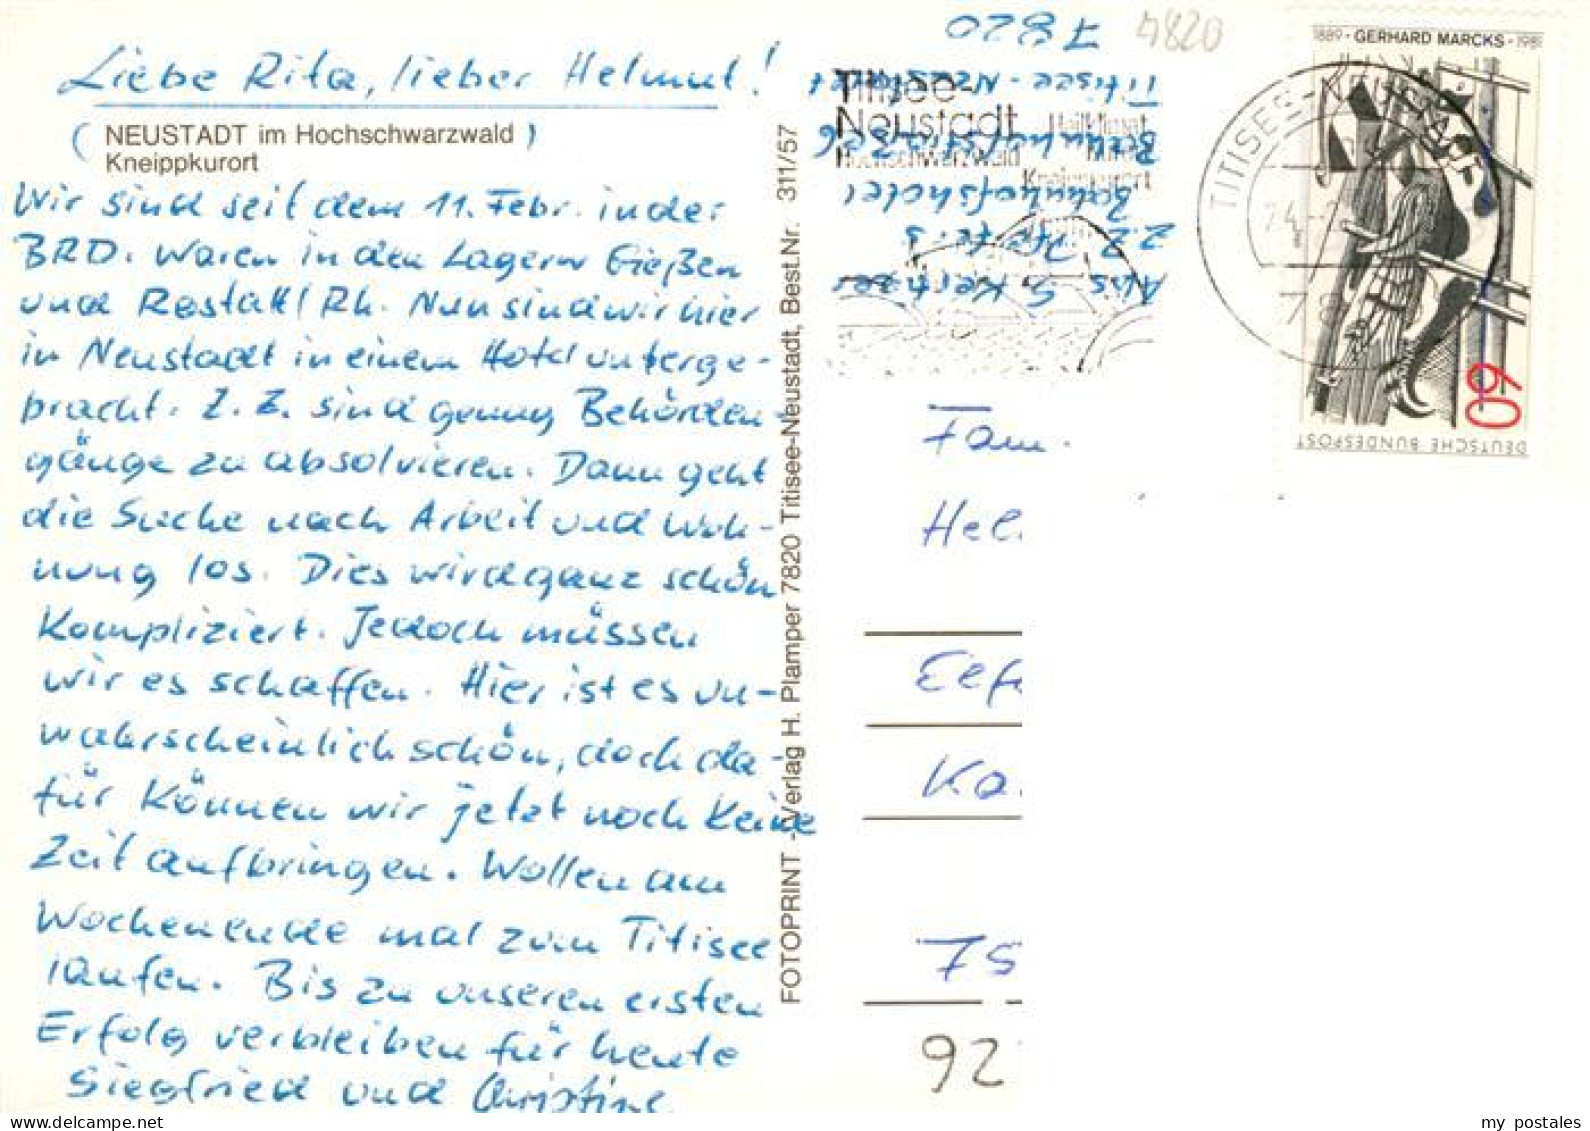 Liebe Rita, lieber Helmut!
(NEUSTADT im Hochschwarzwald)
Kneippkurort
Wir sind seit dem 11. Febr. in der
BRD. Waren in den Lagern Gießen
und Rastatt/Rh. Nun sind wir hier
in Neustadt in einem Hotel unterge-
bracht. Z. Z. sind genug Behörden-
gänge zu absolvieren. Dann geht
die Suche nach Arbeit und Woh-
nung los. Dies wird ganz schön
kompliziert. Jedoch müssen
wir es schaffen. Hier ist es un-
wahrscheinlich schön, doch da-
für können wir jetzt noch keine
Zeit aufbringen. Wollen am
Wochenende mal zum Titisee
laufen. Bis zu unseren ersten
Erfolg verbleiben für heute
Siegfried und Christine
FOTOPRINT - Verlag H. Plamper 7820 Titisee-Neustadt, Best.Nr. 311/57
Abs. S.
z.Z.
Bahnhofshotel
Bahnhofstraße 6
Titisee-Neustadt
7820
4820
Titisee-
Neustadt
Hochschwarzwald
Heilklimat.
Kurort
Kneippkurort
TITISEE-NEUSTADT
24
78
1889 · GERHARD MARCKS · 1981
60
DEUTSCHE BUNDESPOST
Fam.
Hel
Ka
75
92
my postales